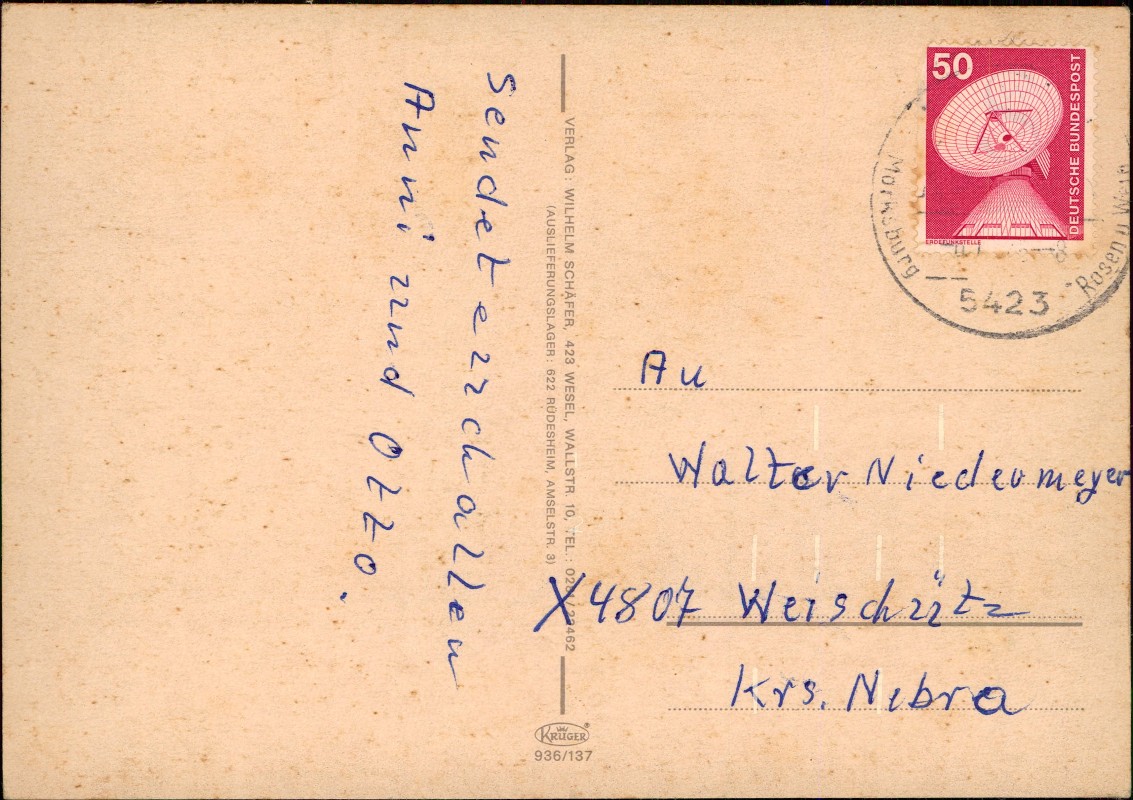 Sendet euch allen
Anni und Otto.
VERLAG: WILHELM SCHÄFER, 423 WESEL, WALLSTR. 10, TEL.: 462
(AUSLIEFERUNGSLAGER: 622 RÜDESHEIM, AMSELSTR. 3)
KRÜGER
936/137
50
DEUTSCHE BUNDESPOST
ERDEFUNKSTELLE
Marksburg
5423
An
Walter Niedermeyer
X4807 Weischütz
Krs. Nebra